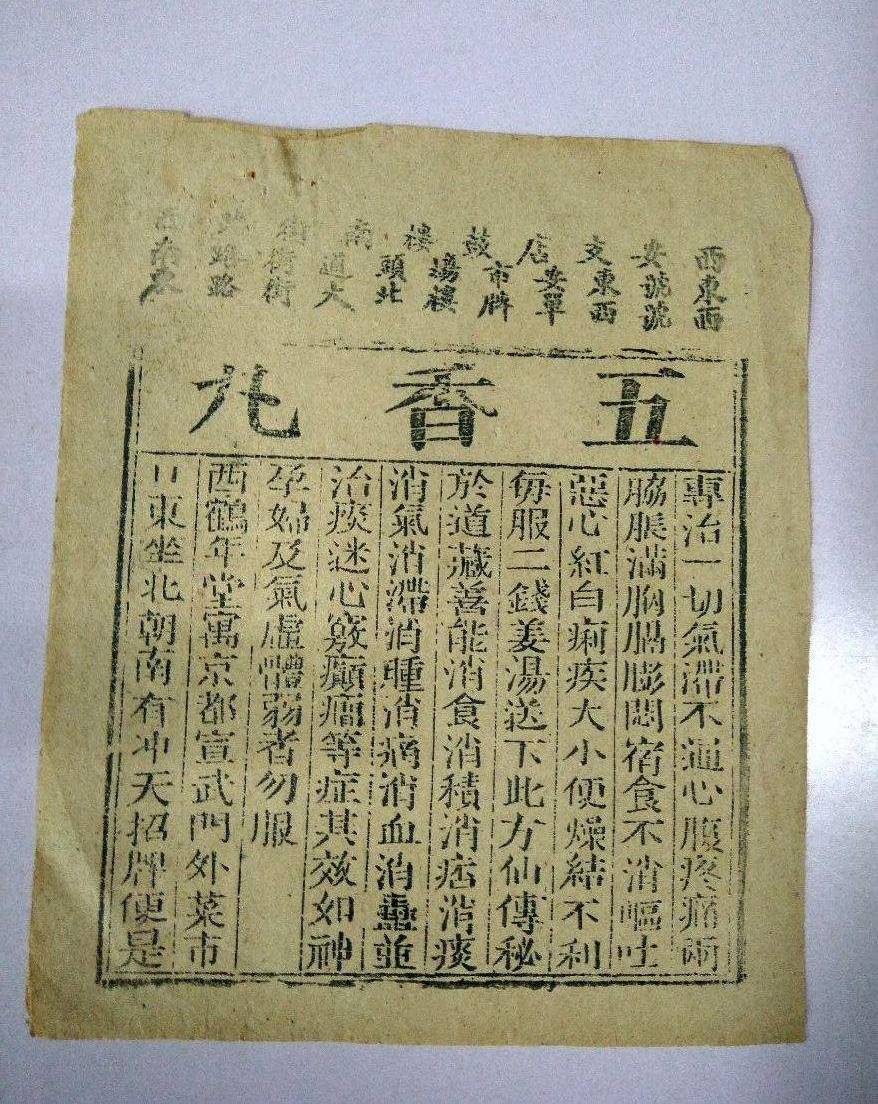 西安支店鼓樓南街路西
東號東安市場頭道街路南
西號西單牌樓北大街路東
五香丸
專治一切氣滯不通心腹疼痛兩
脇脹滿胸膈膨悶宿食不消嘔吐
惡心紅白痢疾大小便燥結不利
每服二錢姜湯送下此方仙傳秘
於道藏善能消食消積消痞消痰
消氣消滯消腫消痛消血消蠱並
治痰迷心竅癲癎等症其效如神
孕婦及氣虛體弱者勿服
西鶴年堂寓京都宣武門外菜市
口東坐北朝南有冲天招牌便是